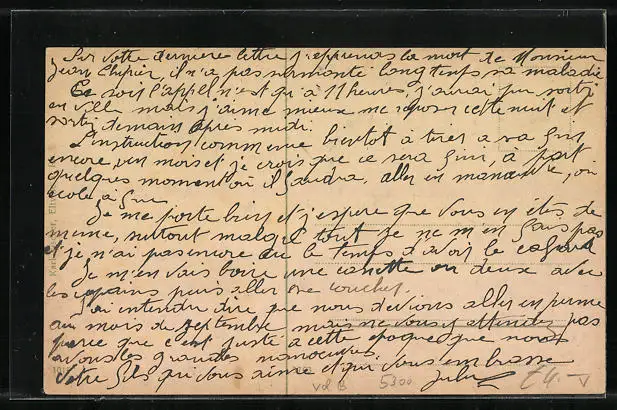 Par votre dernière lettre j'apprends la mort de Monsieur
Jean, il n'a pas surmonté longtemps sa maladie
Ce soir l'appel n'est qu'à 11 heures, j'aurai pu sortir
en ville mais j'aime mieux me reposer cette nuit et
sortir demain après midi.
L'instruction commence bientôt à tirer a sa fin
encore un mois et je crois que ce sera fini, à part
quelques moment où il faudra aller en manœuvre, ou
école à feu
Je me porte bien et j'espère que vous en êtes de
meme, surtout malgré tout je ne m'en fais pas
et je n'ai pas encore eu le temps d'avoir le cafard
Je m'en vais boire une canette ou deux avec
les copains puis aller me coucher.
J'ai entendu dire que nous devions aller en perme
au mois de septembre mais ne vous y attendez pas
parce que c'est juste à cette époque que nous
avons les grandes manoeuvres.
Votre fils qui vous aime et qui vous embrasse
Jules
5300